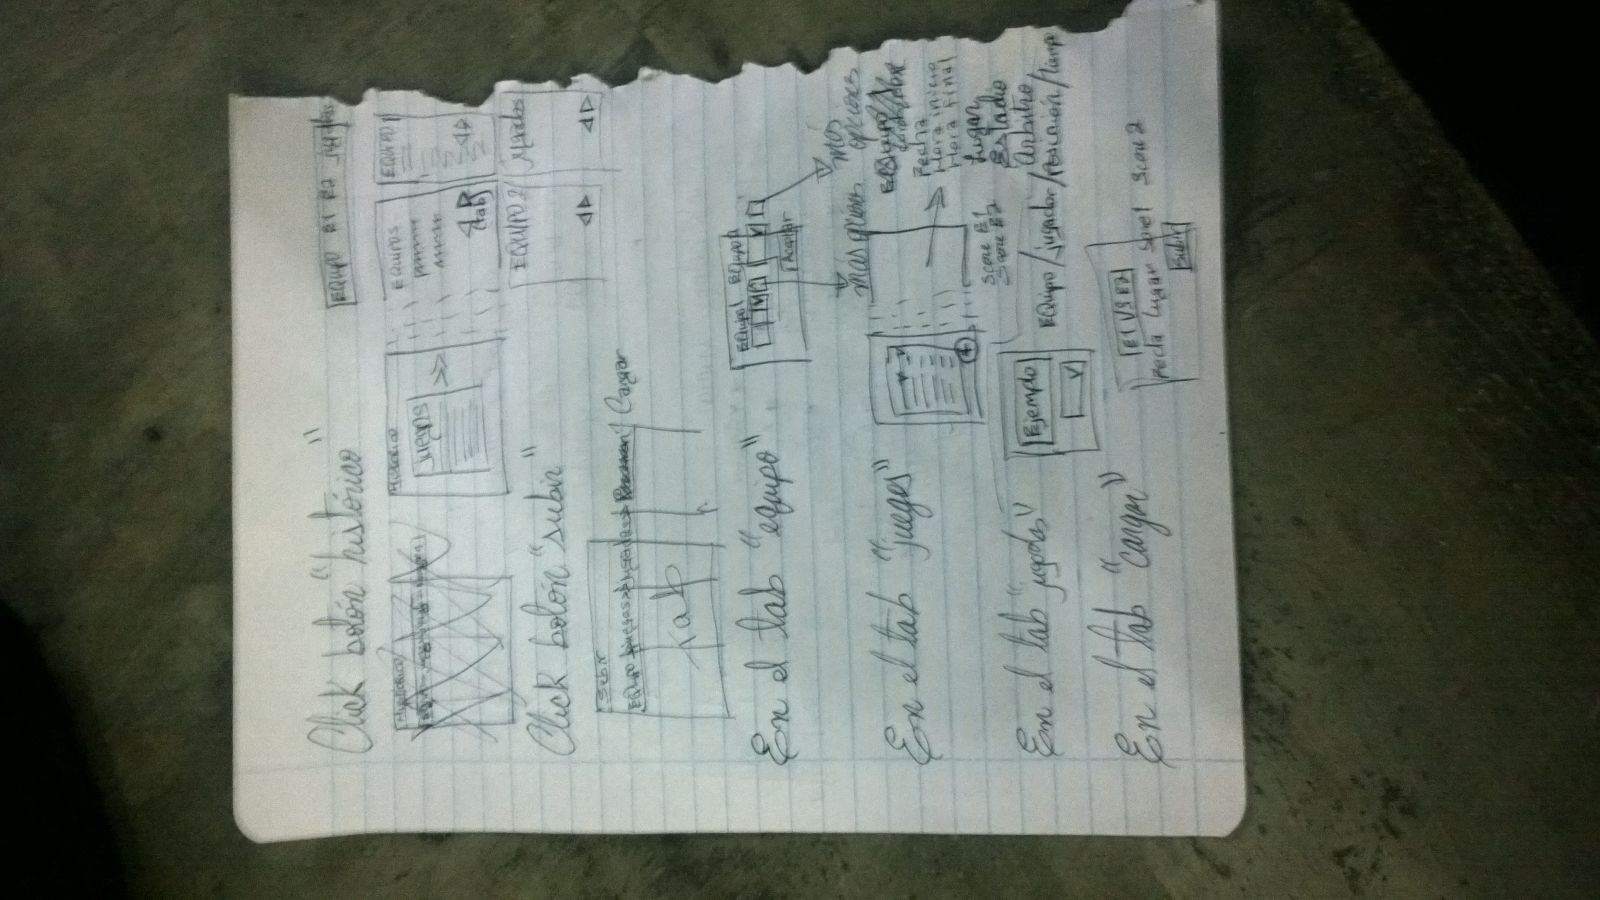 Click botón "histórico"
EQUIPO E1 E2 jugadas
Histórico
Histórico
juegos
>>
EQUIPOS
(tab)
EQUIPO 1
EQUIPO 2
jugadas
Click botón "subir"
Subir
EQUIPO juegos jugadas
Cargar
tab
En el tab "equipo"
EQuipo1 EQuipo2
Aceptar
más opciones
más
opciones
En el tab "juegos"
Fecha
Hora inicio
Hora final
Lugar
Estadio
Arbitro
Score E1
Score E2
En el tab "jugadas"
Ejemplo
EQuipo/jugador/posición/tiempo
En el tab "cargar"
E1 VS E2
Fecha Lugar Score1 Score 2
Subir